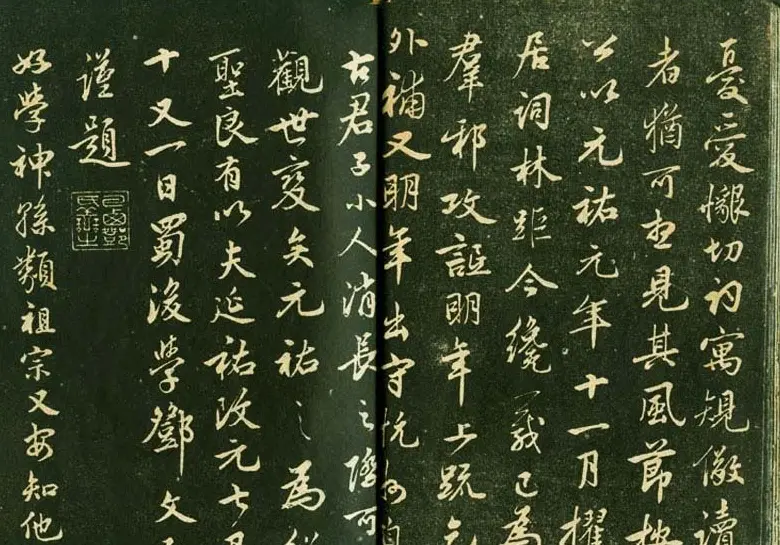 憂愛懇切詞寓規儆讀
者猶可想見其風節按
公以元祐元年十一月擢
居詞林距今纔一歲已為
羣邪攻詆明年上疏乞
外補又明年出守杭州自
古君子小人消長之際可
觀世變矣元祐之為
聖良有以夫延祐改元七月
十又一日蜀後學鄧文
謹題
好學神孫類祖宗又安知他